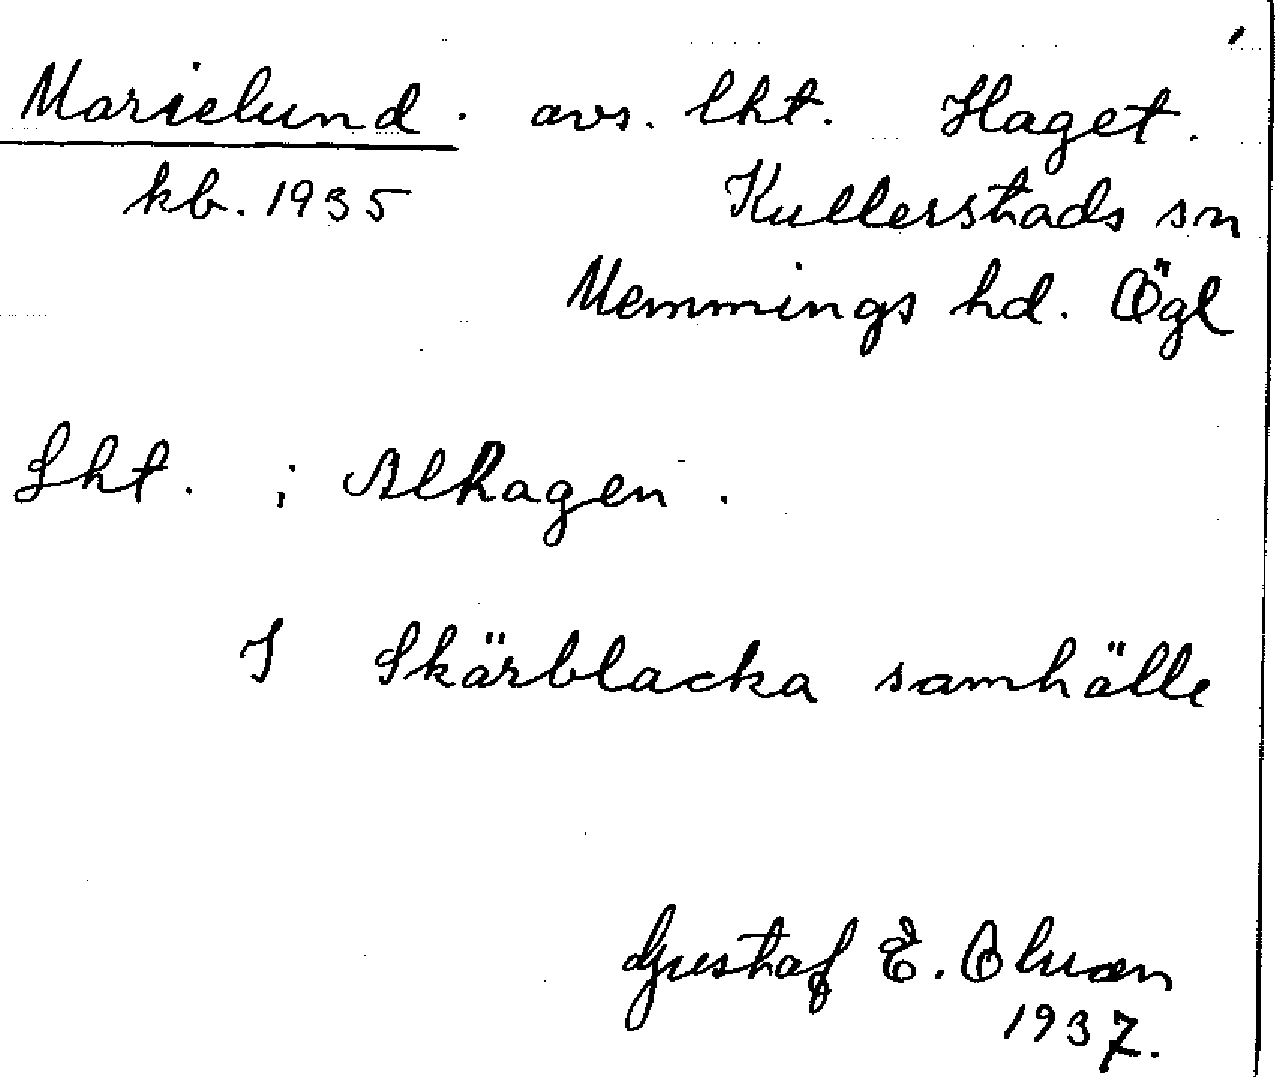 Marielund. avs. lht. Haget.
kb. 1935 Kullerstads sn
Memmings hd. Ögl
Lht. ; Alhagen.
I Skärblacka samhälle
Gustaf E.
1937.